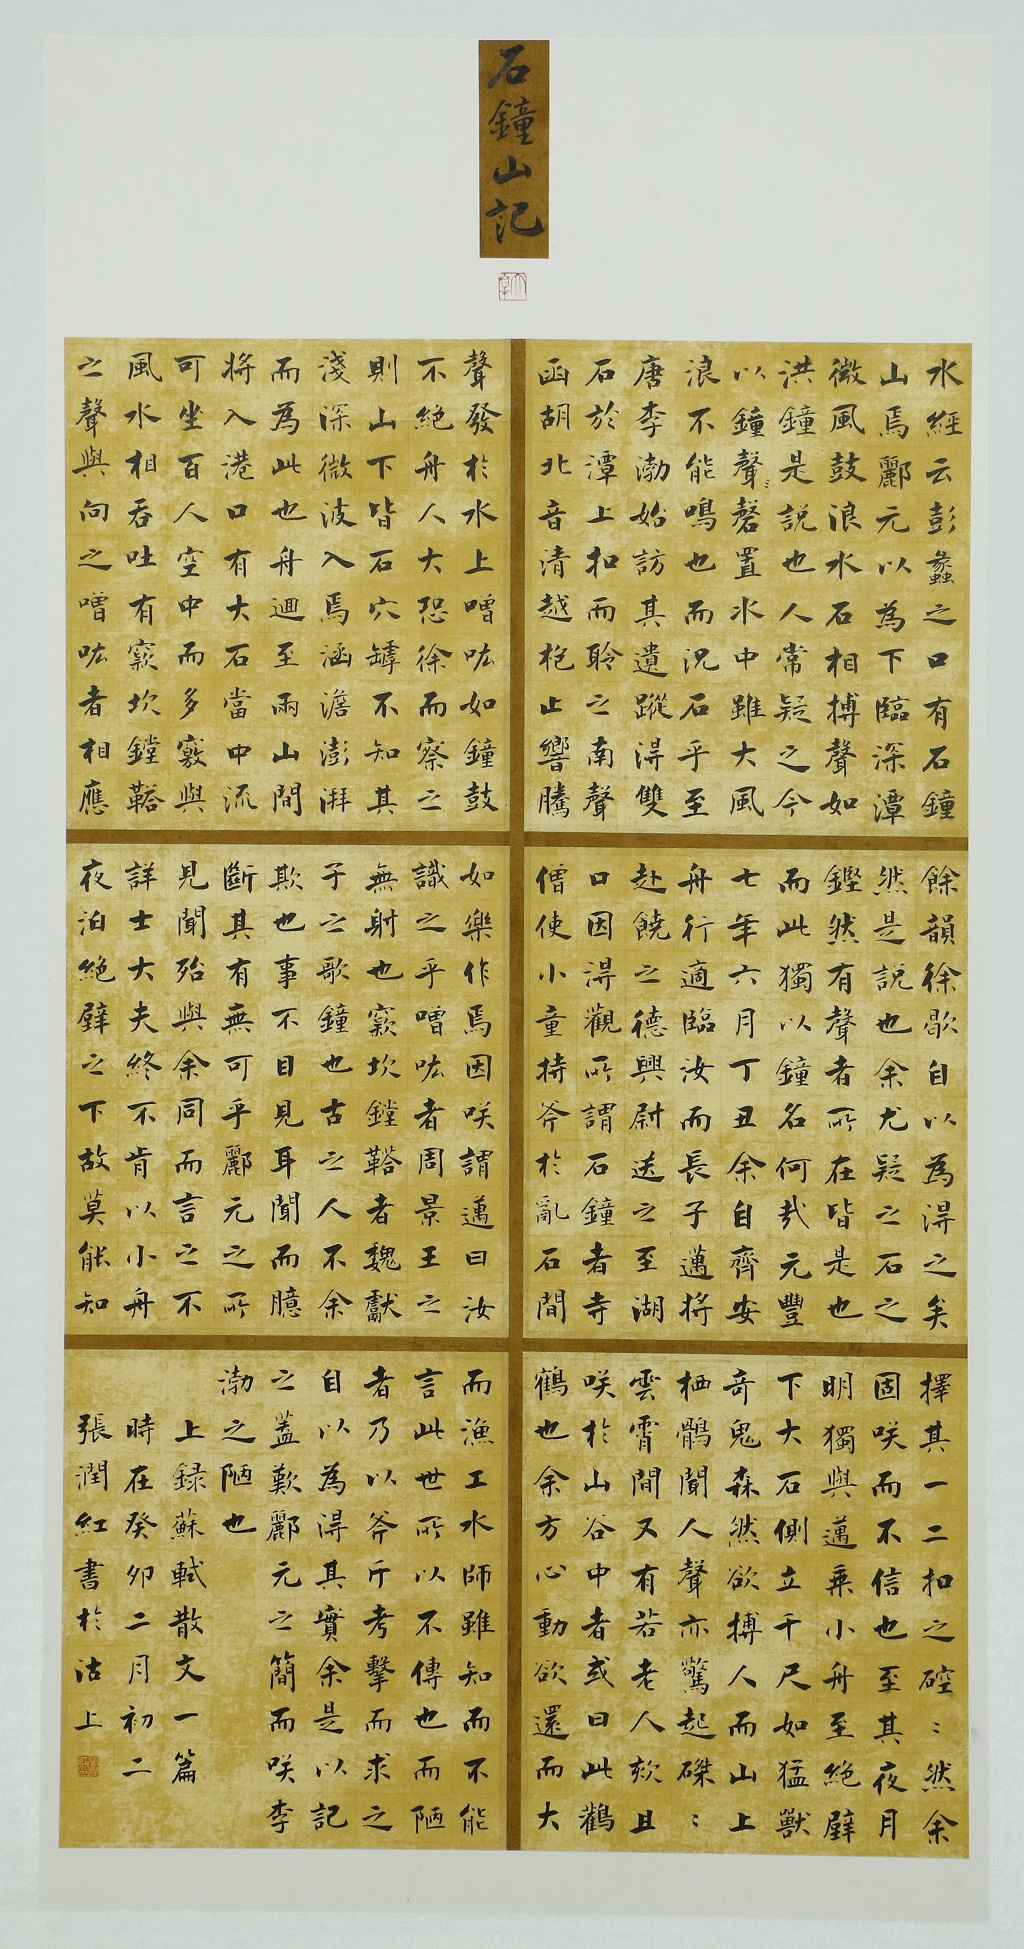 石鐘山記
水經云彭蠡之口有石鐘
山焉酈元以為下臨深潭
微風鼓浪水石相搏聲如
洪鐘是說也人常疑之今
以鐘聲磬置水中雖大風
浪不能鳴也而況石乎至
唐李渤始訪其遺蹤得雙
石於潭上扣而聆之南聲
函胡北音清越枹止響騰
餘韻徐歇自以為得之矣
然是說也余尤疑之石之
鏗然有聲者所在皆是也
而此獨以鐘名何哉元豐
七年六月丁丑余自齊安
舟行適臨汝而長子邁將
赴饒之德興尉送之至湖
口因得觀所謂石鐘者寺
僧使小童持斧於亂石間
擇其一二扣之硿〻然余
固咲而不信也至其夜月
明獨與邁乘小舟至絕壁
下大石側立千尺如猛獸
奇鬼森然欲搏人而山上
栖鶻聞人聲亦驚起磔〻
雲霄間又有若老人欬且
咲於山谷中者或曰此鸛
鶴也余方心動欲還而大
聲發於水上噌吰如鐘鼓
不絕舟人大恐徐而察之
則山下皆石穴罅不知其
淺深微波入焉涵澹澎湃
而為此也舟迴至兩山間
將入港口有大石當中流
可坐百人空中而多竅與
風水相吞吐有窾坎鏜鞳
之聲與向之噌吰者相應
如樂作焉因咲謂邁曰汝
識之乎噌吰者周景王之
無射也窾坎鏜鞳者魏獻
子之歌鐘也古之人不余
欺也事不目見耳聞而臆
斷其有無可乎酈元之所
見聞殆與余同而言之不
詳士大夫終不肯以小舟
夜泊絕壁之下故莫能知
而漁工水師雖知而不能
言此世所以不傳也而陋
者乃以斧斤考擊而求之
自以為得其實余是以記
之蓋歎酈元之簡而咲李
渤之陋也
上録蘇軾散文一篇
時在癸卯二月初二
張潤紅書於沽上